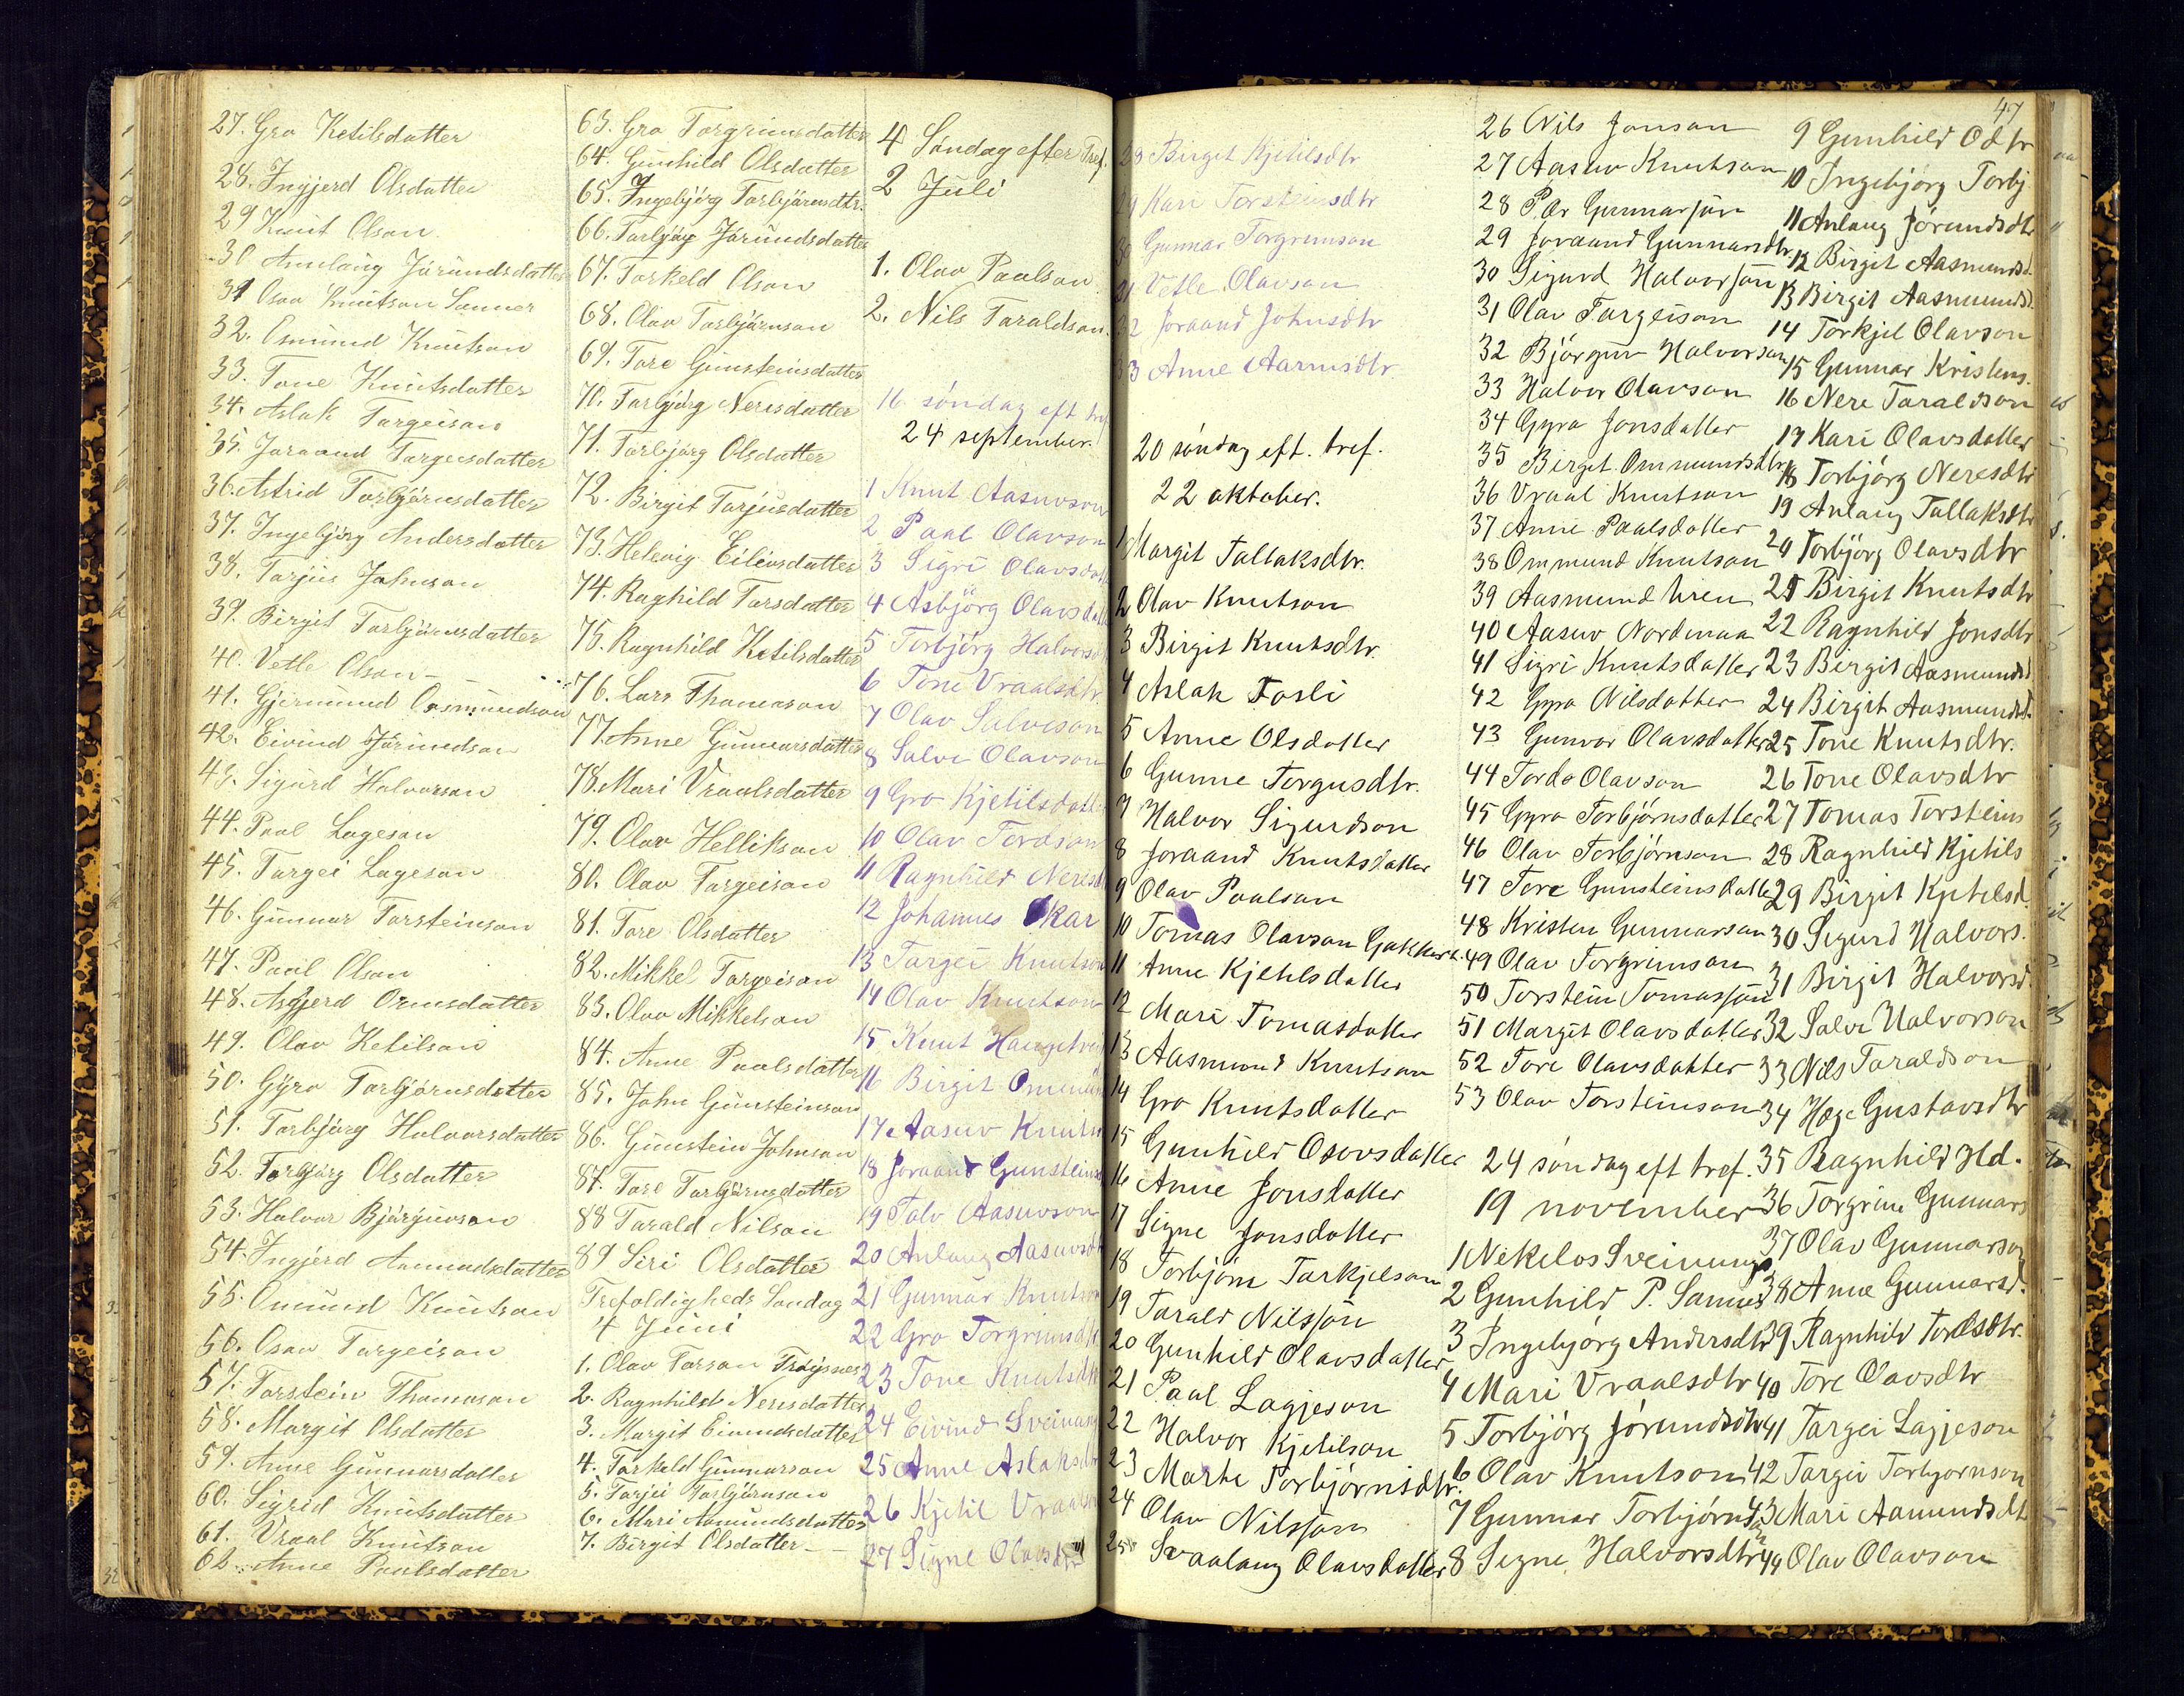 27. Gro Ketilsdatter
28. Ingjerd Olsdatter
29 Knut Olson
30 Annlaug Jörundsdatter
31 Osov Knutson Sanner
32. Omund Knutson
33. Tone Knutsdatter
34. Aslak Targeison
35. Joraand Targusdatter
36. Astrid Torbjörnsdatter
37. Ingebjörg Andersdatter
38. Tarjus Johnson
39. Birgit Torbjörnsdatter
40. Vetle Olson
41. Gjermund Osmundson
42. Eivind Jörundson
43. Sigurd Halvorson
44. Paal Lageson
45. Targei Lageson
46. Gunnar Torsteinson
47. Paal Olson
48. Asgjerd Ormsdatter
49. Olav Ketilson
50. Gyro Torbjörnsdatter
51. Torbjörg Halvorsdatter
52. Torbjörg Olsdatter
53. Halvor Björguvson
54. Ingjerd Aamundsdatter
55. Omund Knutson
56. Osov Targeison
57. Torstein Thomason
58. Margit Olsdatter
59. Anne Gunnarsdatter
60. Sigrid Knutsdatter
61. Vraal Knutson
62. Anne Paalsdatter
63. Gro Torgrimsdatter
64. Gunhild Olsdatter
65. Ingebjörg Torbjörnsdtr.
66. Torbjörg Jörundsdatter
67. Torkeld Olson
68. Olav Torbjörnson
69. Tore Gunsteinsdatter
70. Torbjörg Neresdatter
71. Torbjörg Olsdatter
72. Birgit Tarjusdatter
73. Helevig Eilevsdatter
74. Raghild Torsdatter
75. Ragnhild Ketilsdatter
76. Lars Thomason
77. Anne Gunnarsdatter
78. Mari Vraalsdatter
79. Olav Hellikson
80. Olav Targeison
81. Tore Olsdatter
82. Mikkel Targeison
83. Olav Mikkelson
84. Anne Paalsdatter
85. John Gunsteinson
86. Gunstein Johnson
87. Tore Torbjörnsdatter
88 Tarald Nilson
89 Siri Olsdatter
Trefoldigheds Søndag
4 Juni
1. Olav Torson
2. Ragnhild Neresdatter
3. Margit Eivindsdatter
4. Torkeld Gunnarson
5. Tarjei Torbjörnson
6. Mari Aamundsdatter
7. Birgit Olsdatter
4 Søndag efter Tref.
2 Juli
1. Olav Paalson
2. Nils Taraldson.
16 søndag eft tref
24 september.
1 Knut Aasuvson
2 Paal Olavson
3 Sigri Olavsdatt
4 Asbjörg Olavsdatt
5 Torbjörg Halvorsd
6 Tone Vraalsdtr
7 Olav Salveson
8 Salve Olavson
9 Gro Kjetilsdatt
10 Olav Tordson
11 Ragnhild Neresd
12 Johannes Skar
13 Targei Knutson
14 Olav Knutson
15 Knut
16 Birgit
17 Aasuv Knuts
18 Joraand Gunsteins
19 Talv Aasuvson
20 Anlaug Aasuvsd
21 Gunnar Knutson
22 Gro Torgrimsd
23 Tone Knutsd
24 Eivind Sveinung
25 Anne Aslaksd
26 Kjetil Vraalson
27 Signe Olavsd
28 Birgit Kjetilsdtr
29 Kari Torsteinsdtr
30 Gunnar Torgrimson
31 Vetle Olavson
32 Joraand Johnsdtr
33 Anne Aarmsdtr.
20 søndag eft. tref.
22 oktober.
1 Margit Tallaksdtr.
2 Olav Knutson
3 Birgit Knutsdtr.
4 Aslak Fosli
5 Anne Olsdatter
6 Gunne Torgusdtr.
7 Halvor Sigurdson
8 Joraand Knutsdatter
9 Olav Paalson
10 Tomas Olavson
11 Anne Kjetilsdatter
12 Mari Tomasdatter
13 Aasmund Knutson
14 Gro Knutsdatter
15 Gunhild Osovsdatter
16 Anne Jonsdatter
17 Signe Jonsdatter
18 Torbjörn Tarkjelson
19 Tarald Nilssön
20 Gunhild Olavsdatter
21 Paal Lagjeson
22 Halvor Kjetilson
23 Marte Torbjörnsdtr.
24 Olav Nilssøn
25 Svaalaug Olavsdatter
26 Nils Jonson
27 Aasuv Knutson
28 Per Gunnarsøn
29 Joraand Gunnarsdtr
30 Sigurd Halvorsøn
31 Olav Targeison
32 Björguv Halvorson
33 Halvor Olavson
34 Gyro Jonsdatter
35 Birgit Ommundsdtr
36 Vraal Knutson
37 Anne Paalsdatter
38 Ommund Knutson
39 Aasmund Uren
40 Aasuv Nordmaa
41 Sigri Knutsdatter
42 Gyro Nilsdatter
43 Gunvor Olavsdatter
44 Tordo Olavson
45 Gyro Torbjörnsdatter
46 Olav Torbjörnson
47 Tore Gunsteinsdatter
48 Kristen Gunnarson
49 Olav Torgrimson
50 Torstein Tomassøn
51 Margit Olavsdatter
52 Tore Olavsdatter
53 Olav Torsteinson
24 søndag eft tref.
19 november
1 Nekelos Sveinungs
2 Gunhild P. Sannes
3 Ingebjörg Andersdtr
4 Mari Vraalsdtr
5 Torbjörg Jörundsdtr
6 Olav Knutson
7 Gunnar Torbjörnson
8 Signe Halvorsdtr
47
9 Gunhild O dtr
10 Ingebjörg Torbj
11 Anlaug Jörundsdtr
12 Birgit Aasmundsd.
13 Birgit Aasmundsd.
14 Torkjel Olavson
15 Gunnar Kristens.
16 Nere Taraldson
17 Kari Olavsdatter
18 Torbjörg Neresdtr
19 Anlaug Tallaksdtr
20 Torbjörg Olavsdtr
21 Birgit Knutsdtr
22 Ragnhild Jonsdtr
23 Birgit Aasmundsd
24 Birgit Aasmundsd.
25 Tone Knutsdtr.
26 Tone Olavsdtr
27 Tomas Torsteins
28 Ragnhild Kjetils
29 Birgit Kjetilsd.
30 Sigurd Halvors.
31 Birgit Halvorsd.
32 Salve Halvorson
33 Nils Taraldson
34 Hæge Gustavsdtr
35 Ragnhild Hd.
36 Torgrim Gunnars
37 Olav Gunnarson
38 Anne Gunnarsd.
39 Ragnhild Tordsdtr.
40 Tore Oavsdtr
41 Targei Lagjeson
42 Targei Torbjornson
43 Mari Aamundsdt
44 Olav Olavson